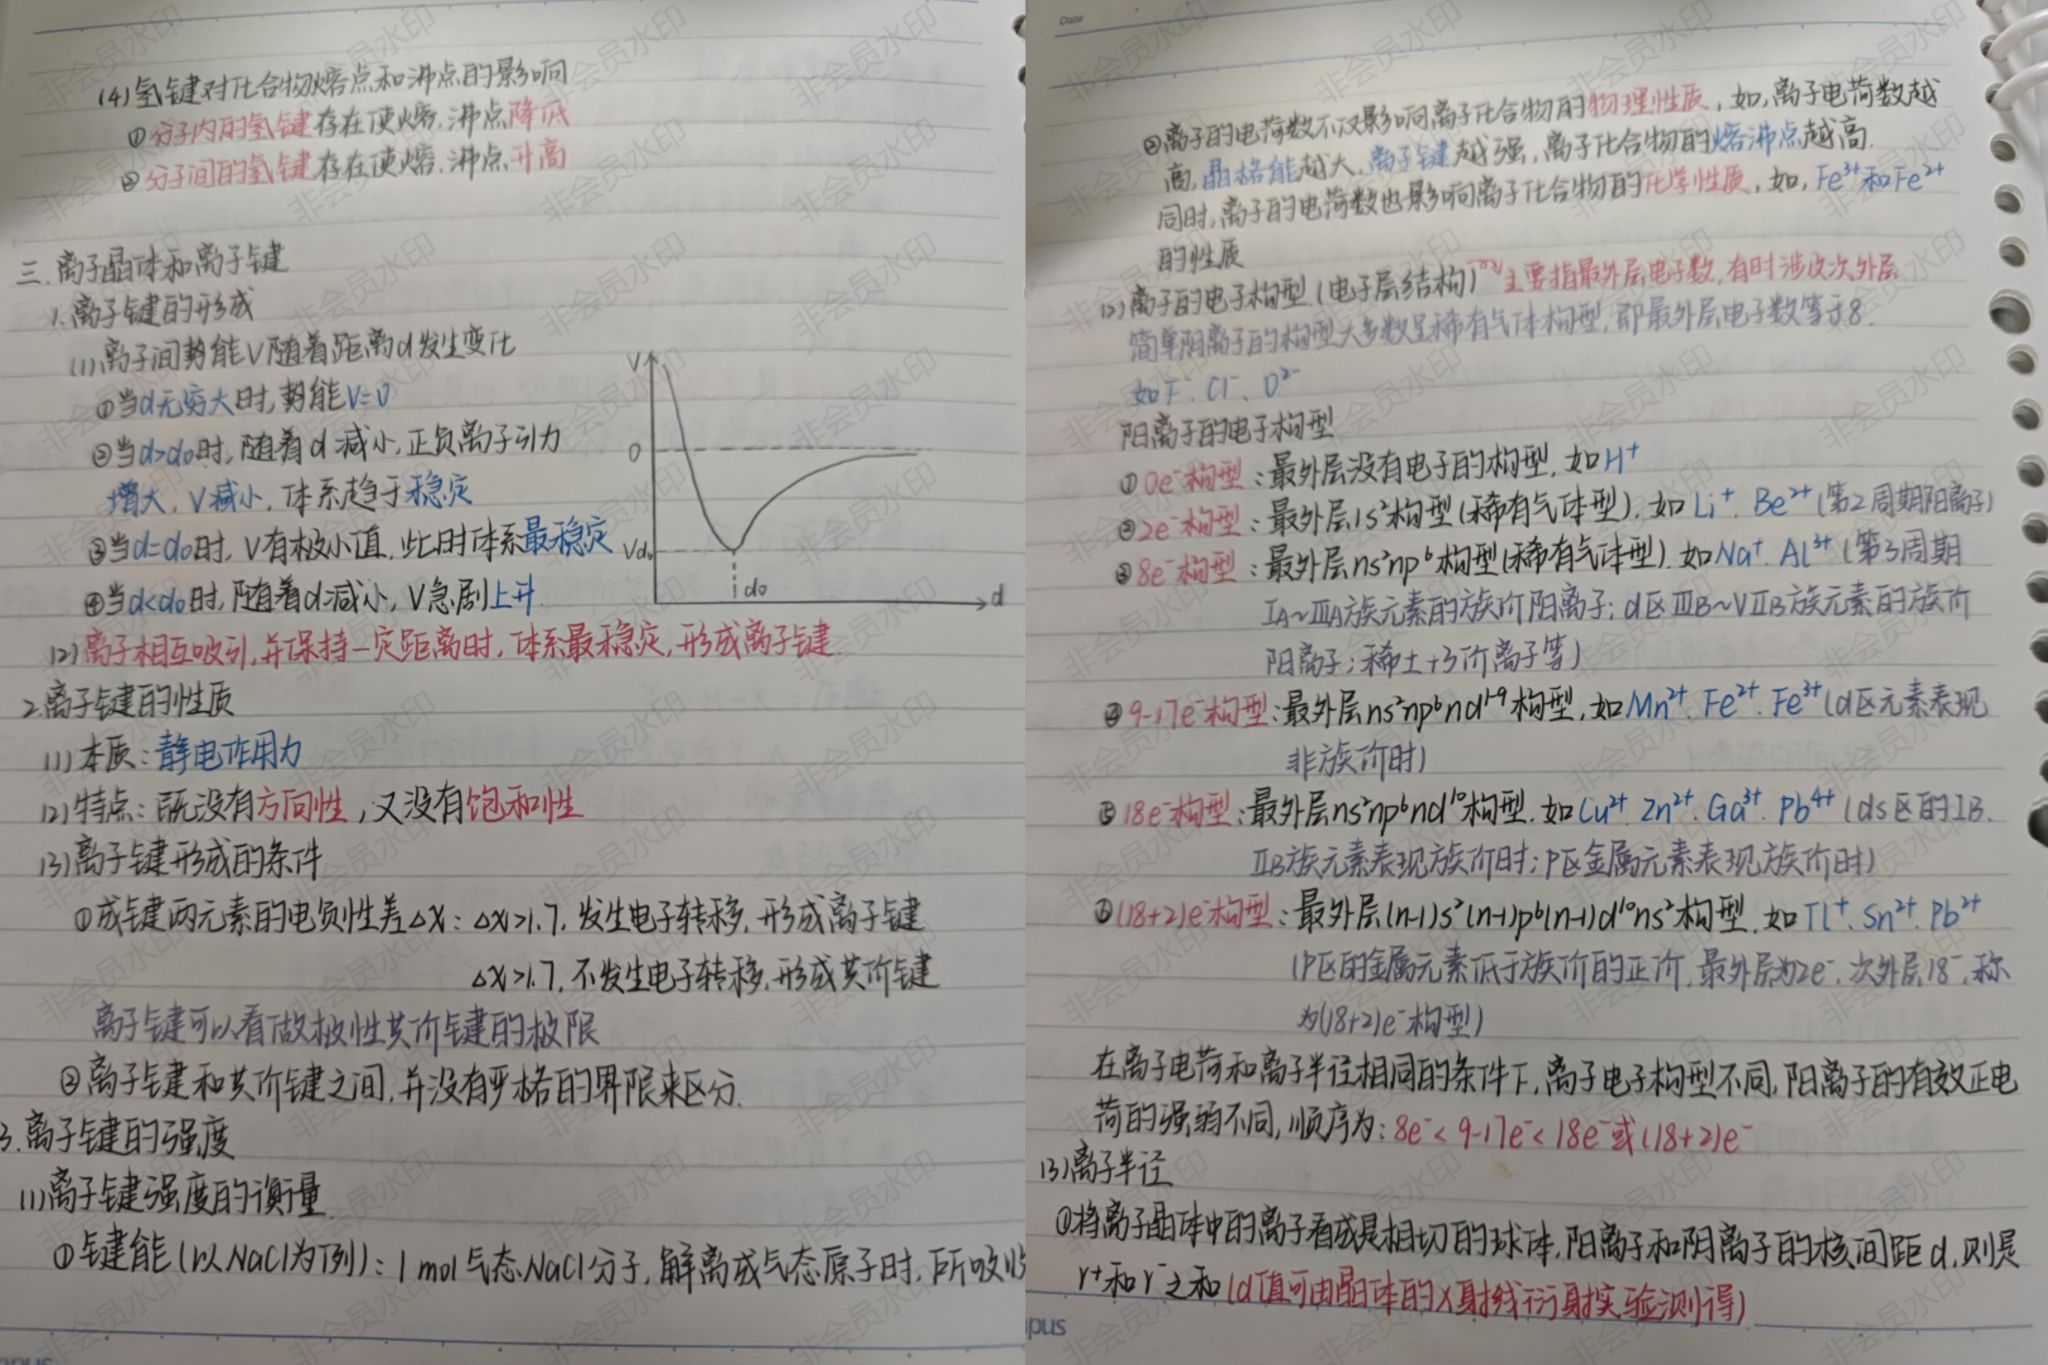 (4)氢键对化合物熔点和沸点的影响
①分子内的氢键存在使熔.沸点降低
②分子间的氢键存在使熔.沸点升高
三.离子晶体和离子键
1.离子键的形成
(1)离子间势能V随着距离d发生变化
①当d无穷大时,势能V=0
②当d>d₀时,随着d减小,正负离子引力
增大,V减小,体系趋于稳定
③当d=d₀时,V有极小值,此时体系最稳定
④当d<d₀时,随着d减小,V急剧上升.
V
0
Vd₀
d₀
d
(2)离子相互吸引,并保持一定距离时,体系最稳定,形成离子键.
2.离子键的性质
(1)本质:静电作用力
(2)特点:既没有方向性,又没有饱和性
(3)离子键形成的条件
①成键两元素的电负性差△X:△X>1.7,发生电子转移,形成离子键
△X>1.7,不发生电子转移,形成共价键
离子键可以看做极性共价键的极限
②离子键和共价键之间,并没有严格的界限来区分.
3.离子键的强度
(1)离子键强度的衡量
①键能(以NaCl为例):1mol气态NaCl分子,解离成气态原子时,所吸收
Date
②离子的电荷数不仅影响离子化合物的物理性质,如,离子电荷数越
高,晶格能越大,离子键越强,离子化合物的熔沸点越高.
同时,离子的电荷数也影响离子化合物的化学性质,如,Fe³⁺和Fe²⁺
的性质
(2)离子的电子构型(电子层结构)主要指最外层电子数,有时涉及次外层
简单阴离子的构型大多数呈稀有气体构型,即最外层电子数等于8.
如F⁻、Cl⁻、O²⁻
阳离子的电子构型
①0e⁻构型:最外层没有电子的构型.如H⁺
②2e⁻构型:最外层1s²构型(稀有气体型).如Li⁺.Be²⁺(第2周期阳离子)
③8e⁻构型:最外层ns²np⁶构型(稀有气体型).如Na⁺.Al³⁺(第3周期
IA~IIIA族元素的族价阳离子;d区IIIB~VIIB族元素的族价
阳离子;稀土+3价离子等)
④9-17e⁻构型:最外层ns²np⁶nd¹⁻⁹构型,如Mn²⁺.Fe²⁺.Fe³⁺(d区元素表现
非族价时)
⑤18e⁻构型:最外层ns²np⁶nd¹⁰构型.如Cu²⁺.Zn²⁺.Ga³⁺.Pb⁴⁺(ds区的IB.
IIB族元素表现族价时;P区金属元素表现族价时)
⑥(18+2)e⁻构型:最外层(n-1)s²(n-1)p⁶(n-1)d¹⁰ns²构型.如Tl⁺.Sn²⁺.Pb²⁺
(P区的金属元素低于族价的正价,最外层为2e⁻.次外层18⁻,称
为(18+2)e⁻构型)
在离子电荷和离子半径相同的条件下,离子电子构型不同,阳离子的有效正电
荷的强弱不同,顺序为:8e⁻<9-17e⁻<18e⁻或(18+2)e⁻
(3)离子半径
①将离子晶体中的离子看成是相切的球体,阳离子和阴离子的核间距d,则是
r⁺和r⁻之和(d值可由晶体的X射线衍射实验测得)
pus
非会员水印